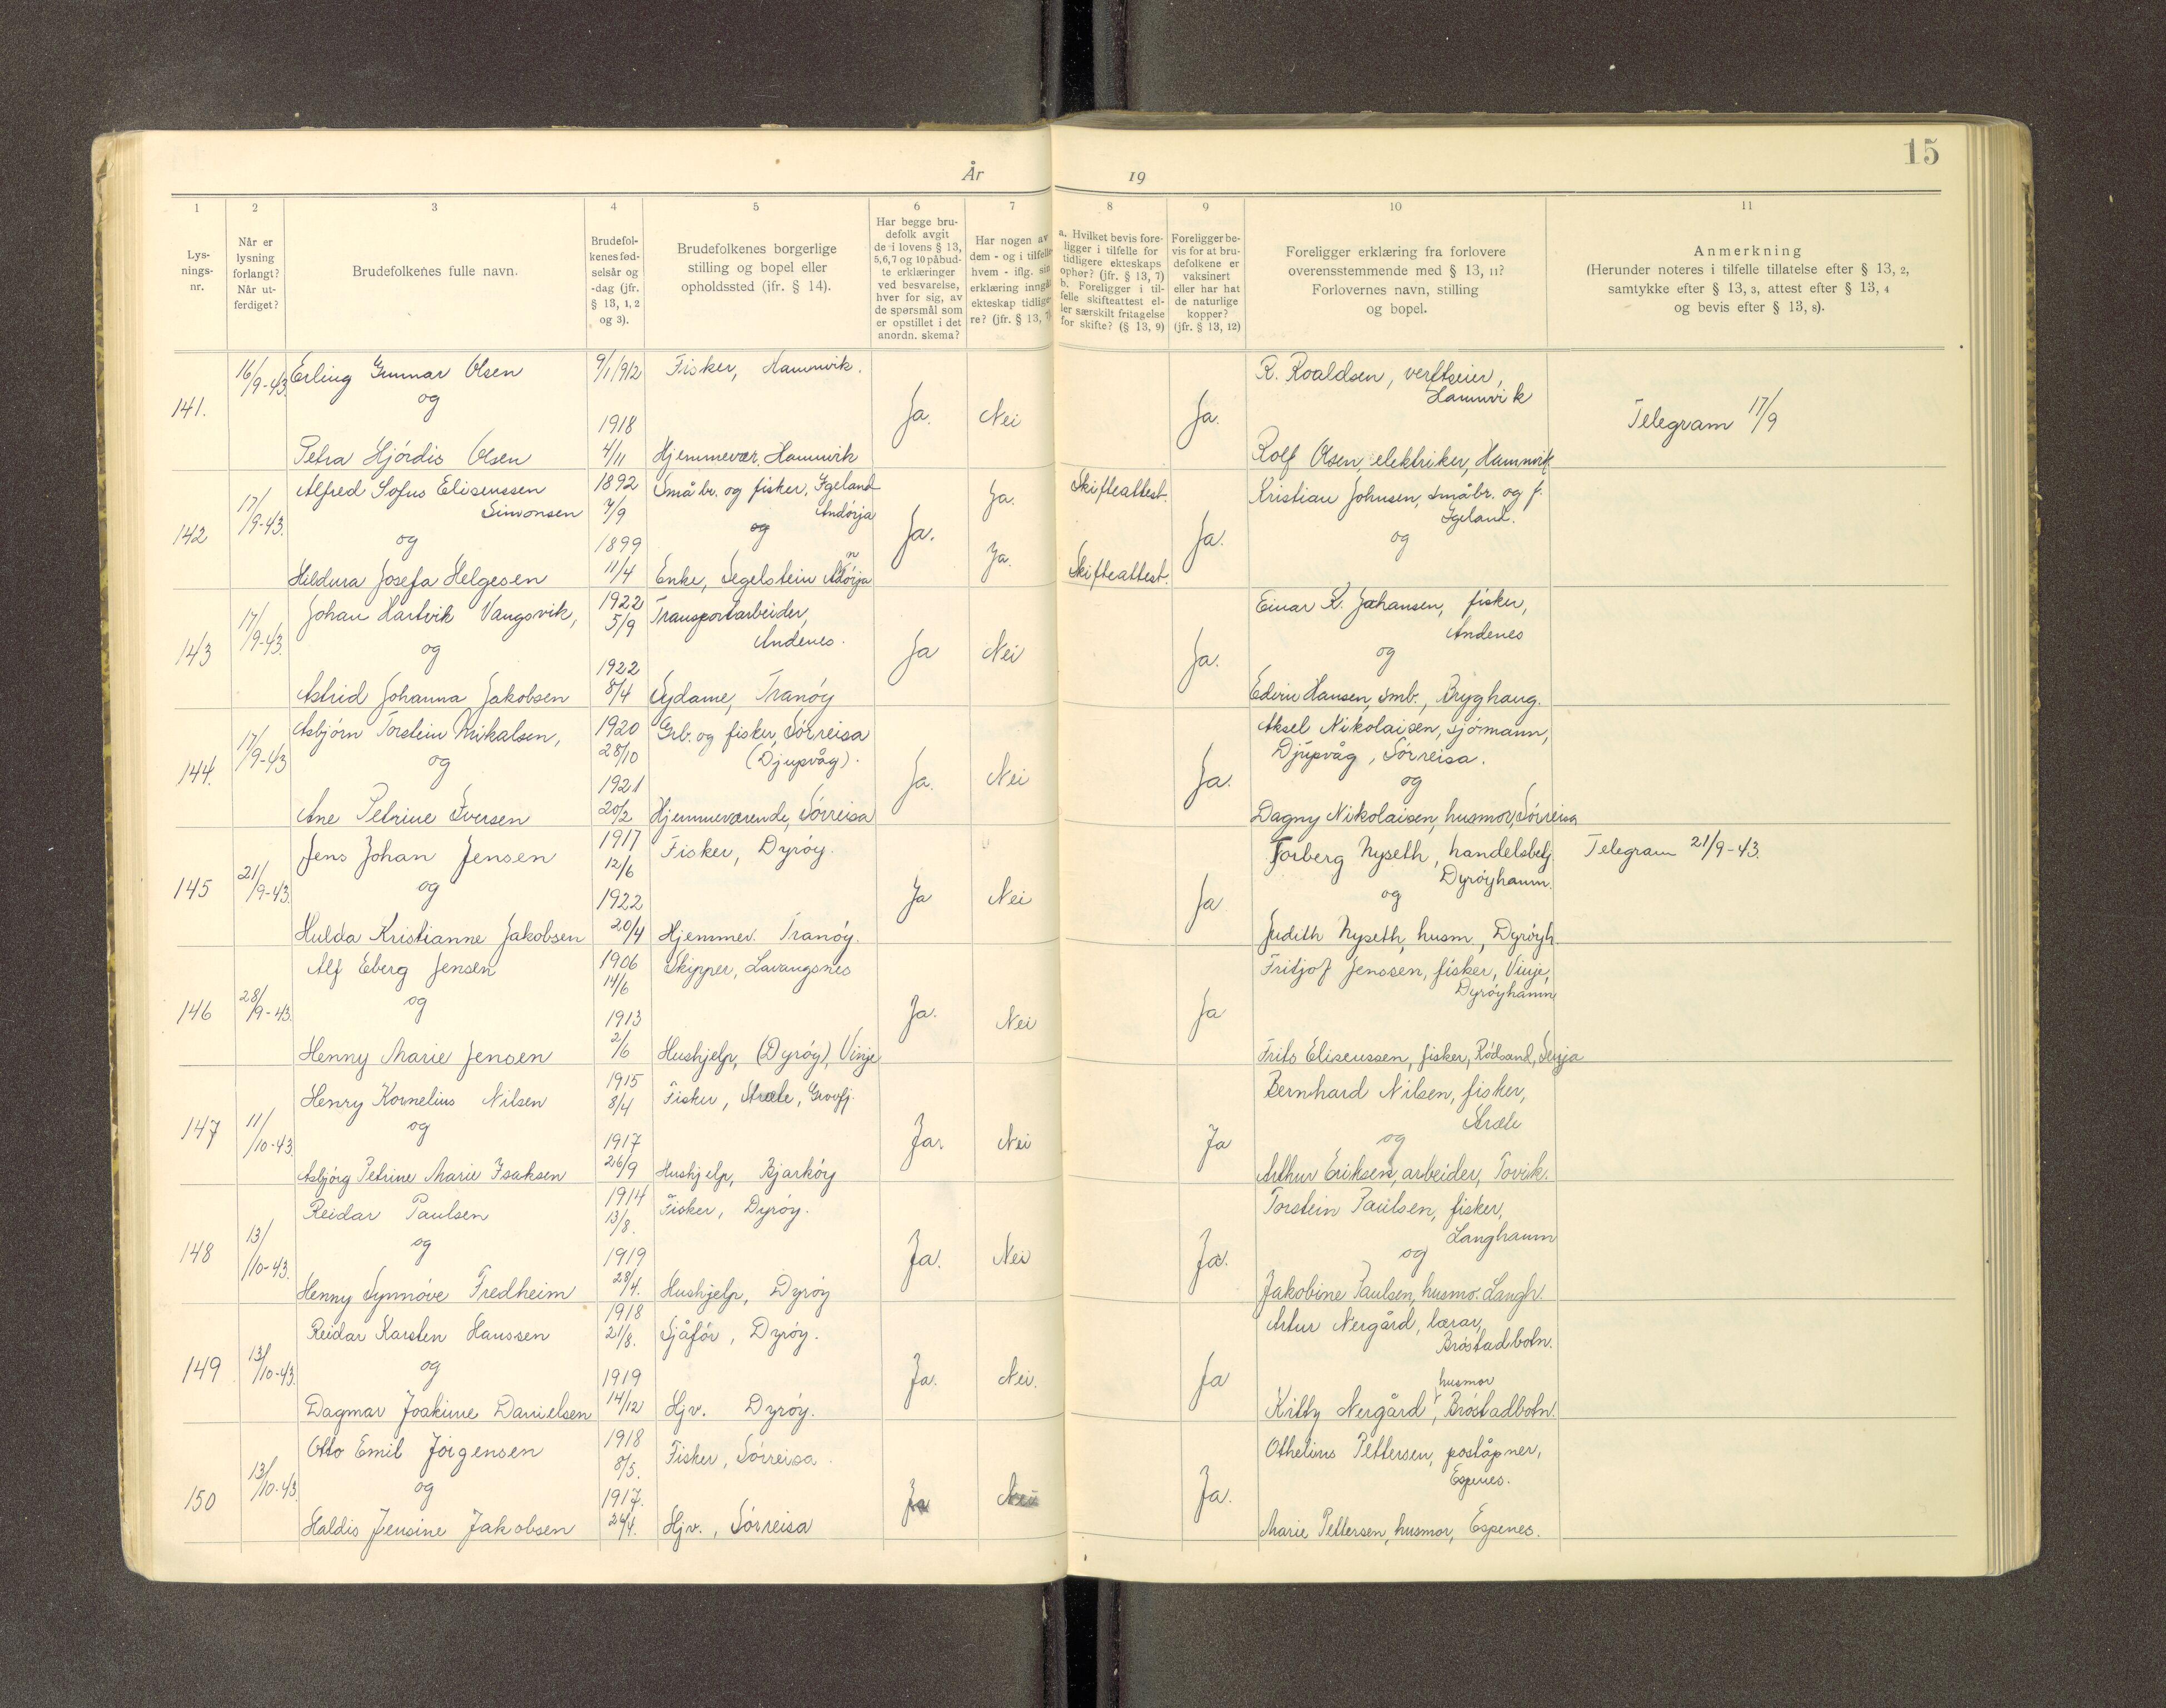 15
År 19
1 2 3 4 5 6 7 8 9 10 11
Lys-
nings-
nr.
Når er
lysning
forlangt?
Når ut-
ferdiget?
Brudefolkenes fulle navn.
Brudefol-
kenes fød-
selsår og
-dag (jfr.
§ 13, 1, 2
og 3).
Brudefolkenes borgerlige
stilling og bopel eller
opholdssted (jfr. § 14).
Har begge bru-
defolk avgit
de i lovens § 13,
5,6,7 og 10 påbud-
te erklæringer
ved besvarelse,
hver for sig, av
de spørsmål som
er opstillet i det
anordn. skema?
Har nogen av
dem - og i tilfelle
hvem - iflg. sin
erklæring inngåt
ekteskap tidlige-
re? (jfr. § 13, 7)
a. Hvilket bevis fore-
ligger i tilfelle for
tidligere ekteskaps
ophør? (jfr. § 13, 7)
b. Foreligger i til-
felle skifteattest el-
ler særskilt fritagelse
for skifte? (§ 13, 9)
Foreligger be-
vis for at bru-
defolkene er
vaksinert
eller har hat
de naturlige
kopper?
(jfr. § 13, 12)
Foreligger erklæring fra forlovere
overensstemmende med § 13, 11?
Forlovernes navn, stilling
og bopel.
Anmerkning
(Herunder noteres i tilfelle tillatelse efter § 13, 2,
samtykke efter § 13, 3, attest efter § 13, 4
og bevis efter § 13, 8).
16/9-43 Erling Gunnar Olsen 9/1 1912 Fisker, Hamnvik. R. Roaldsen, verftseier,
Hamnvik
141. og Ja. Nei Ja. Telegram 17/9
1918
Petra Hjórdis Olsen 4/11 Hjemmevær. Hamnvik Rolf Olsen, elektriker, Hamnvik
Alfred Sofus Eliseussen 1892 Småbr. og fisker, Igeland Ja. Skifteattest. Kristian Johnsen, småbr. og f.
Simonsen 7/9 Andórja Igeland.
142 17/9-43. og 1899 og Ja. Ja. Ja. og
Hildura Josefa Helgesen 11/4 Enke, Segelstein Andórja Skifteattest.
Johan Hartvik Vangsvik, 1922 Transportarbeider, Einar K. Johansen, fisker,
5/9 Andenes. Andenes
143 17/9-43. og Ja Nei Ja. og
1922
Astrid Johanna Jakobsen 8/4 Sydame, Tranóy Edvin Hansen, smb., Bryghaug.
Asbjórn Torstein Mikalsen, 1920 Grb. og fisker, Sórreisa Aksel Nikolaisen, sjómann,
28/10 (Djupvåg). Djupvåg, Sórreisa.
144. 17/9-43 og 1921 Ja. Nei Ja. og
Ane Petrine Iversen 20/2 Hjemmeværende, Sórreisa Dagny Nikolaisen, husmor, Sórreisa
Jens Johan Jensen 1917 Fisker, Dyróy. Torberg Nyseth, handelsbetj. Telegram 21/9-43.
12/6 Dyróyhamn.
145 21/9-43. og 1922 Ja Nei Ja og
Hulda Kristianne Jakobsen 20/4 Hjemmev. Tranóy. Judith Nyseth, husm., Dyróyh.
Alf Eberg Jensen 1906 Skipper, Lavangsnes Fritjof Jenssen, fisker, Vinje,
14/6 Dyróyhamn
146 28/9-43. og 1913 Ja. Nei Ja
Henny Marie Jensen 2/6 Hushjelp, (Dyróy), Vinje Frits Eliseussen, fisker, Ródsand, Senja
Henry Kornelius Nilsen 1915 Fisker, Stræle, Grovfj. Bernhard Nilsen, fisker,
8/4 Stræle
147 11/10-43. og 1917 Ja. Nei Ja og
Asbjórg Petrine Marie Isaksen 26/9 Hushjelp, Bjarkóy Arthur Eriksen, arbeider, Tovik.
Reidar Paulsen 1914 Fisker, Dyróy. Torstein Paulsen, fisker,
13/8. Langhamn
148 13/10-43. og 1919 Ja. Nei Ja. og
Henny Synnóve Fredheim 28/4. Hushjelp, Dyróy Jakobine Paulsen, husmo. Langh.
Reidar Karsten Hanssen 1918 Sjåfór, Dyróy. Artur Nergård, lærar,
21/8. Bróstadbotn.
149 13/10-43. og 1919 Ja. Nei. Ja husmor
Dagmar Joakime Danielsen 14/12 Hjv. Dyróy. Kitty Nergård, Bróstadbotn.
Otto Emil Jórgensen 1918 Fisker, Sórreisa. Othelius Pettersen, poståpner,
8/5. Espenes.
150 13/10-43. og 1917. Ja Nei Ja.
Haldis Jensine Jakobsen 24/4. Hjv., Sórreisa Marie Pettersen, husmor, Espenes.